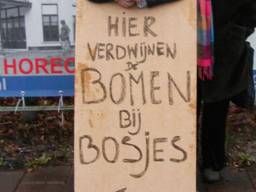 HIER
VERDWIJNEN
DE
BOMEN
BIJ
BOSJES
HOREC